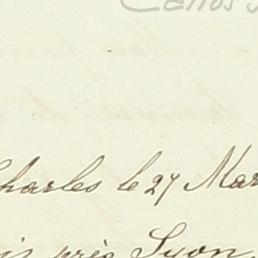 Carlos
Charles le 27 Mar
près Lyon.